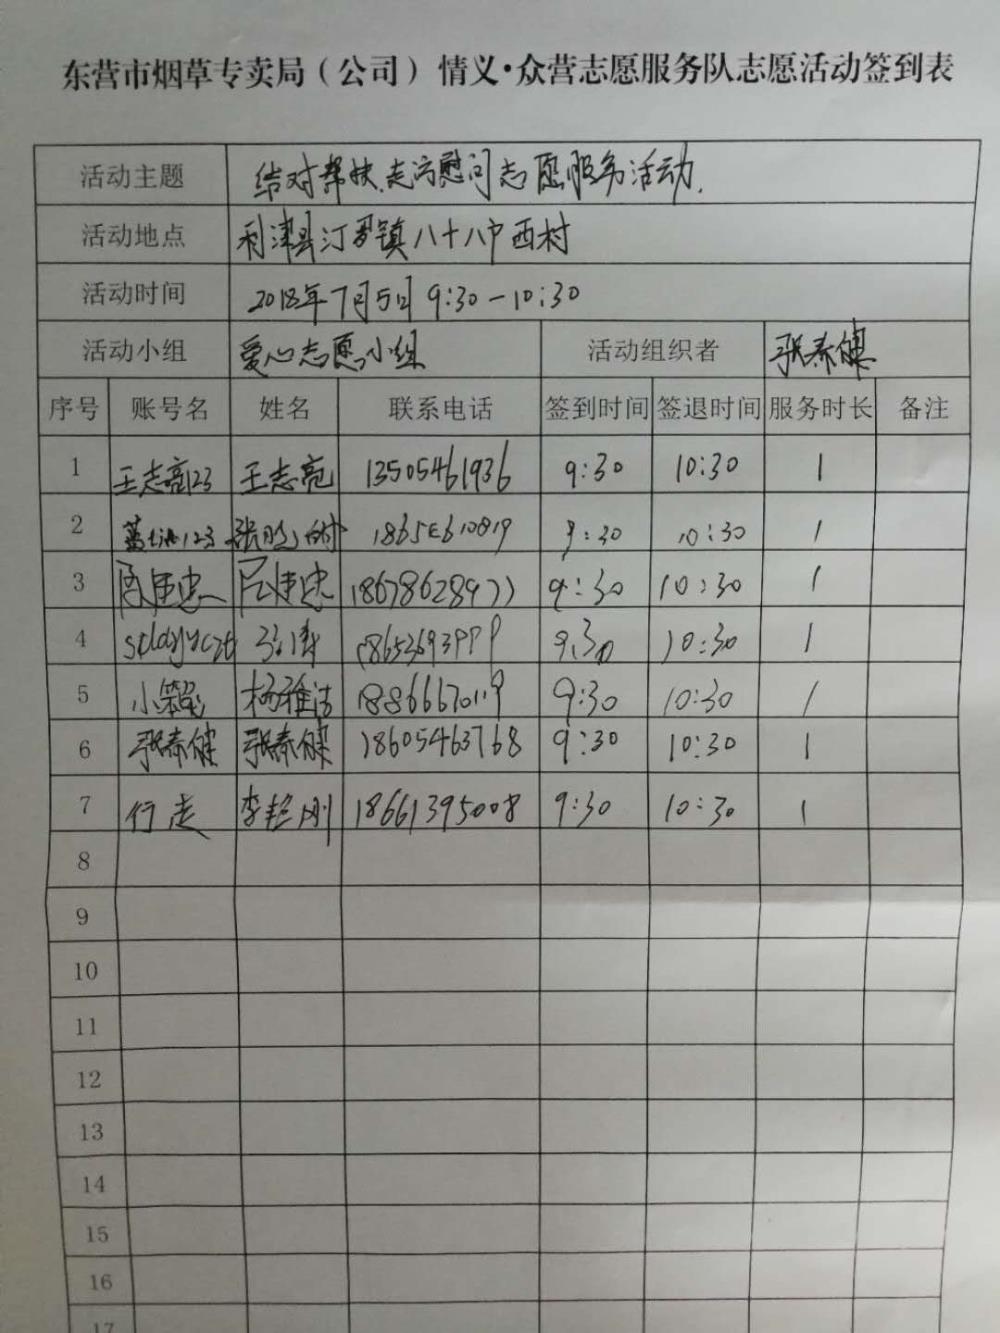 东营市烟草专卖局（公司）情义·众营志愿服务队志愿活动签到表
活动主题 结对帮扶.走访慰问志愿服务活动.
活动地点 利津县汀罗镇八十八户西村
活动时间 2018年7月5日 9:30-10:30
活动小组 爱心志愿小组 活动组织者 张泰健
序号 账号名 姓名 联系电话 签到时间 签退时间 服务时长 备注
1 王志亮123 王志亮 13505461936 9:30 10:30 1
2 9:30 10:30 1
3 18678628977 9:30 10:30 1
4 18653693999 9:30 10:30 1
5 杨雅洁 18866670119 9:30 10:30 1
6 张泰健 张泰健 18605463768 9:30 10:30 1
7 行走 李艳刚 18661395008 9:30 10:30 1
8
9
10
11
12
13
14
15
16
17